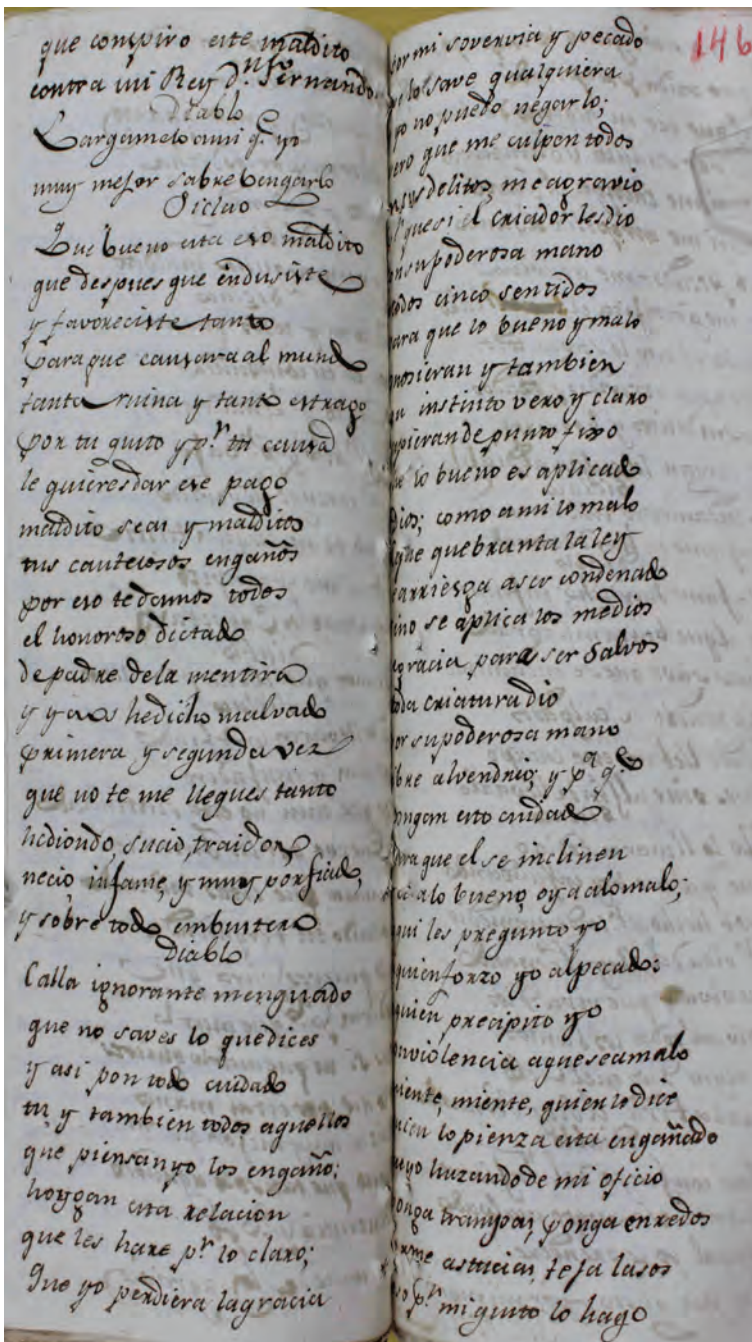 que conspiro este maldito
contra mi Rey Dn. Fernando
Diablo
Largamelo ami q.e yo
muy mejor sabre bengarlo
Siclaco
Que bueno esta eso maldito
que despues que indusiste
y favoreciste tanto
para que causara al mundo
tanta ruina y tanto estrago
por tu gusto y pr. tu causa
le quieres dar ese pago
maldito seas y malditos
tus cautelosos engaños
por eso te damos todos
el honoroso dictado
de padre dela mentira
y ya os hedicho malvado
primera y segunda vez
que no te me llegues tanto
hediondo, sucio, traidor,
necio, infame, y muy porfiado,
y sobre todo embustero
Diablo
Calla ignorante menguado
que no saves lo quedices
y asi pon todo cuidado
tu, y tambien todos aquellos
que piensan yo los engaño;
hoygan esta relacion
que les hare pr. lo claro;
Que yo perdiera lagracia
146
por mi sovervia y pecado
lo save qualquiera
yo no puedo negarlo;
pero que me culpen todos
sus delitos, me agravio
que si el criador les dio
su poderosa mano
todos cinco sentidos
para que lo bueno y malo
y tambien
instinto vero y claro
de punto fixo
lo bueno es aplicado
Dios; como ami lo malo
que quebranta la ley
arriesga aser condenado
sino se aplica los medios
gracia para ser Salvos
toda criatura dio
por su poderosa mano
libre alvendrio; y pa. q.e
pongan esto cuidado
para que el se inclinen
alo bueno, oya alomalo;
aqui les pregunto yo
quien forzo yo alpecado:
quien precipito yo
violencia aqueseamalo
miente, miente, quien lo dice
quien lo pienza esta engañado
yo huzando de mi oficio
ponga trampas, ponga enredos
astucias, teja lasos
pr. mi gusto lo hago